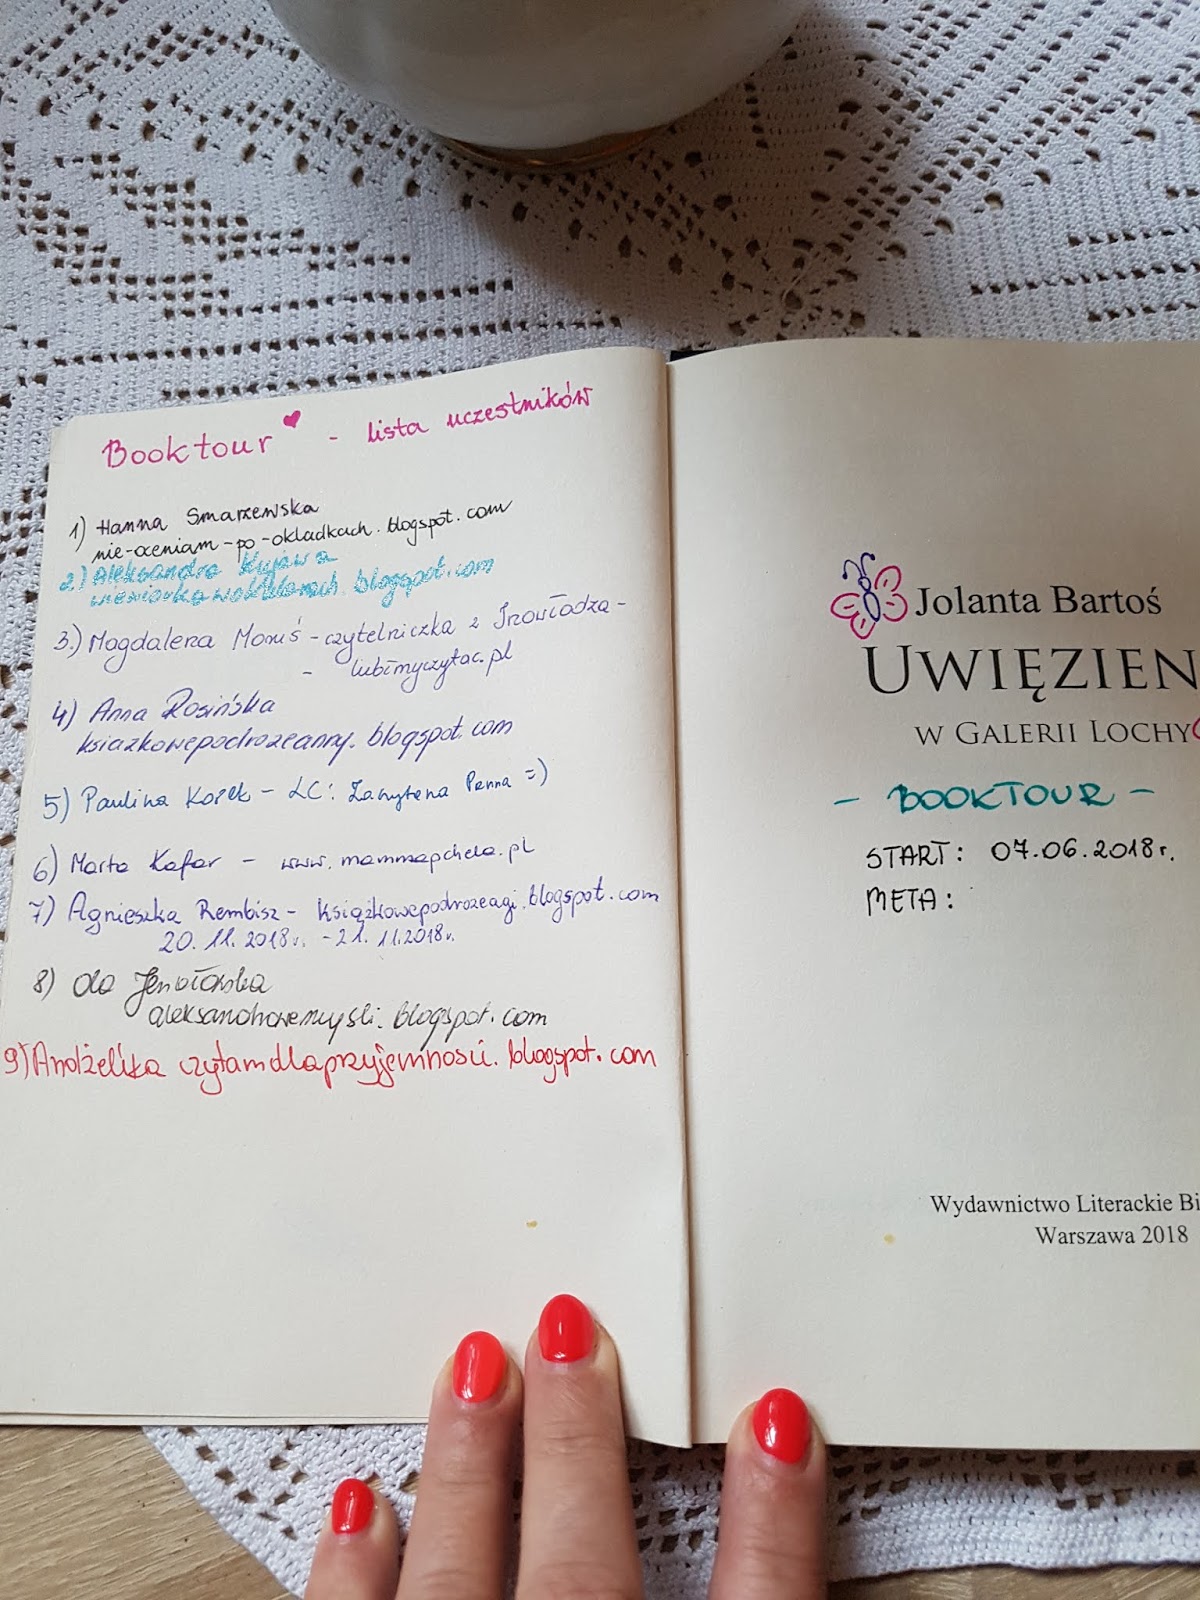 Booktour - lista uczestników
1) Hanna Smarzewska
nie-oceniam-po-okladkach.blogspot.com
2.) Aleksandra Kujawa
blogspot.com
3.) Magdalena - czytelniczka z
- lubimyczytac.pl
4) Anna Rosińska
ksiazkowepodrozeanny.blogspot.com
5) Paulina Korek - LC: Zaczytana Panna =)
6) Marta Kafar - www.mammapchela.pl
7) Agnieszka Rembisz - książkowepodrozeagi.blogspot.com
20.11.2018r. - 21.11.2018r.
8) Ola
blogspot.com
9) Andżelika czytamdlaprzyjemnosci.blogspot.com
Jolanta Bartoś
UWIĘZIEN
W GALERII LOCHY
- BOOKTOUR -
START: 07.06.2018r.
META:
Wydawnictwo Literackie Bi
Warszawa 2018